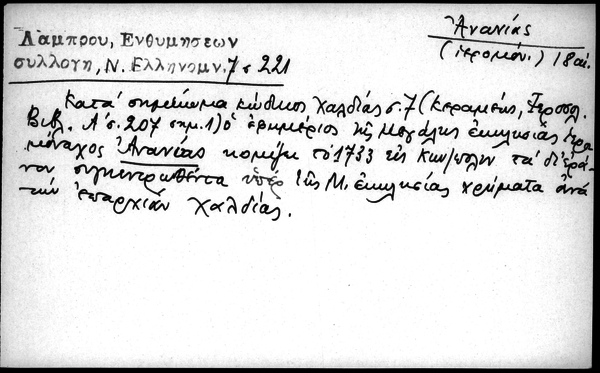 Λάμπρου, Ενθυμήσεων
συλλογή, Ν. Ελληνομν. 7 σ 221
Ἀνανίας
(ἱερομόν.) 18 αἰ.
Κατά σημείωμα κώδικος Χαλδίας σ. 7 (Κεραμεύς, Ἱεροσολ.
Βιβλ. Α' σ. 207 σημ. 1) ὁ ἐφημέριος τῆς Μεγάλης ἐκκλησίας ἱερο
μόναχος Ἀνανίας κομίζει τό 1733 εἰς Κων/πολιν τά δι' ἐρά-
νου συγκεντρωθέντα ὑπέρ τῆς Μ. ἐκκλησίας χρήματα ἀνά
τήν ἐπαρχίαν Χαλδίας.